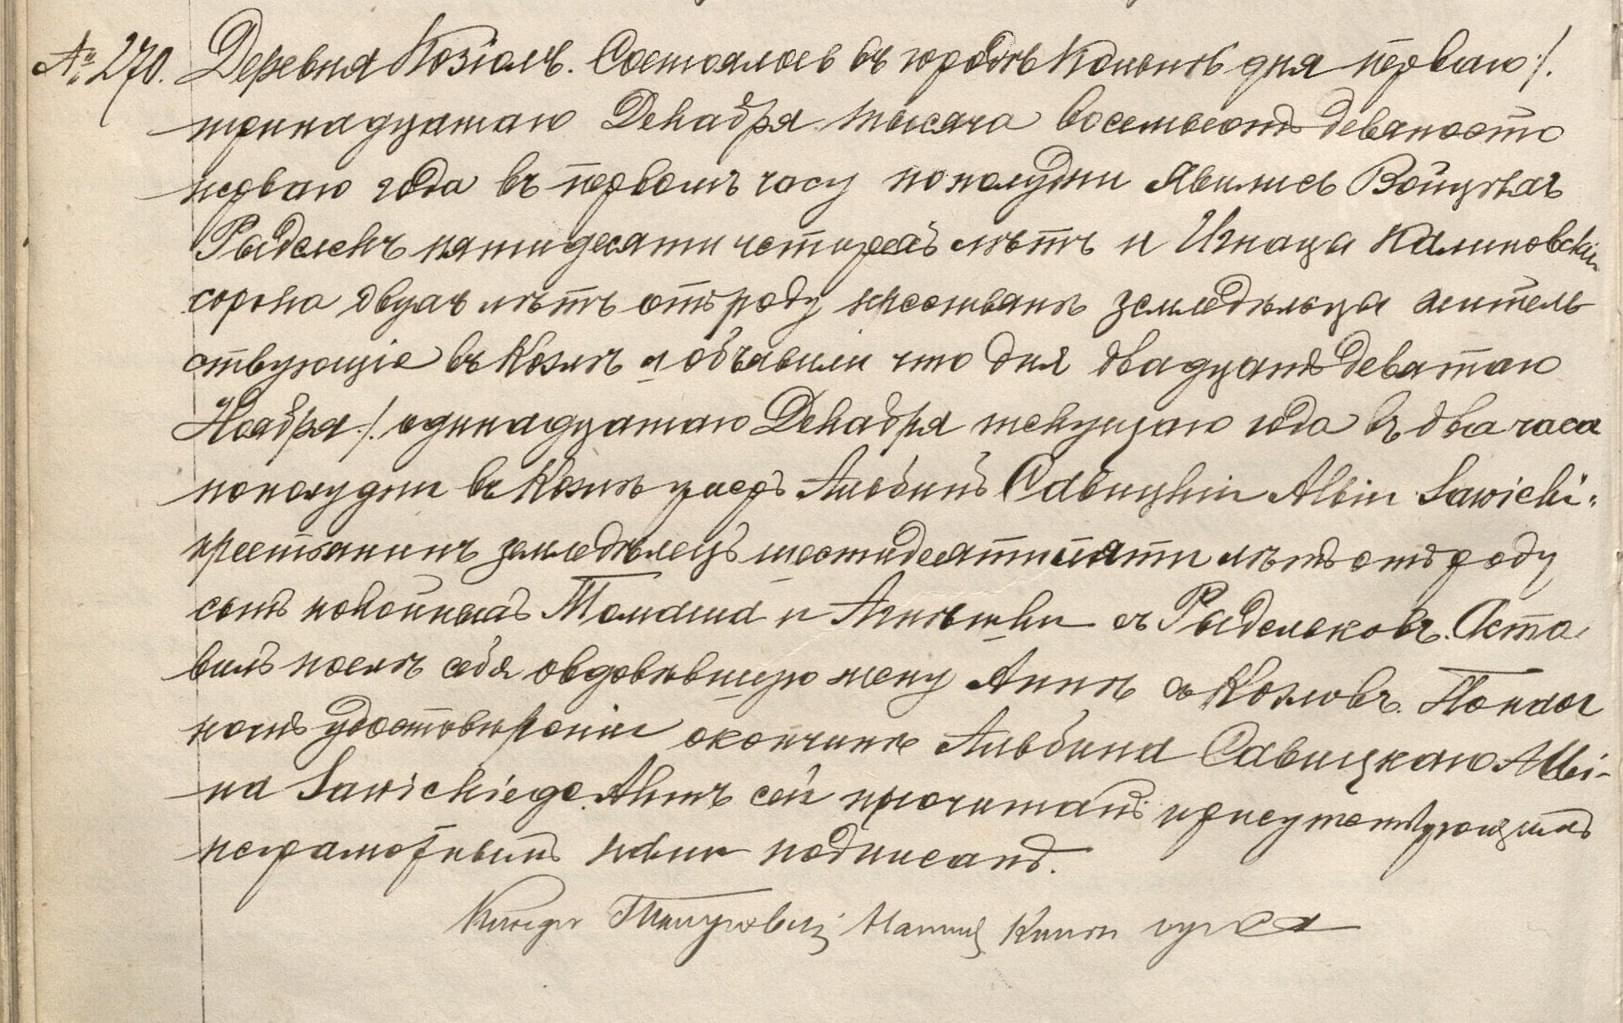 № 270. Деревня Козіолъ. Состоялось въ городѣ Кольнѣ дня перваго /.
тринадцатаго Декабря тысяча восемьсотъ девяносто
перваго года въ первомъ часу пополудни Явились Войцѣхъ
Рыделекъ пятидесяти четырехъ лѣтъ и Игнацы Калиновскій
сорока двухъ лѣтъ отъ роду крестьяне земледѣльцы житель
ствующіе въ Козлѣ и объявили что дня двадцать девятаго
Ноября /. одинадцатаго Декабря текущаго года въ два часа
пополудни въ Козлѣ умеръ Альбинъ Савицкій Albin Sawicki
крестьянинъ земледѣлецъ шестидесяти пяти лѣтъ отъ роду
сынъ покойныхъ Томаша и Агнѣшки съ Рыделековъ. Оста
вилъ послѣ себя овдовѣвшую жену Аннѣ съ Козловъ. По надлѣ
номъ удостовѣреніи о кончинѣ Альбина Савицкаго Albi-
na Sawickiego. Актъ сей прочитанъ присутствующимъ
неграмотнымъ Нами подписанъ.